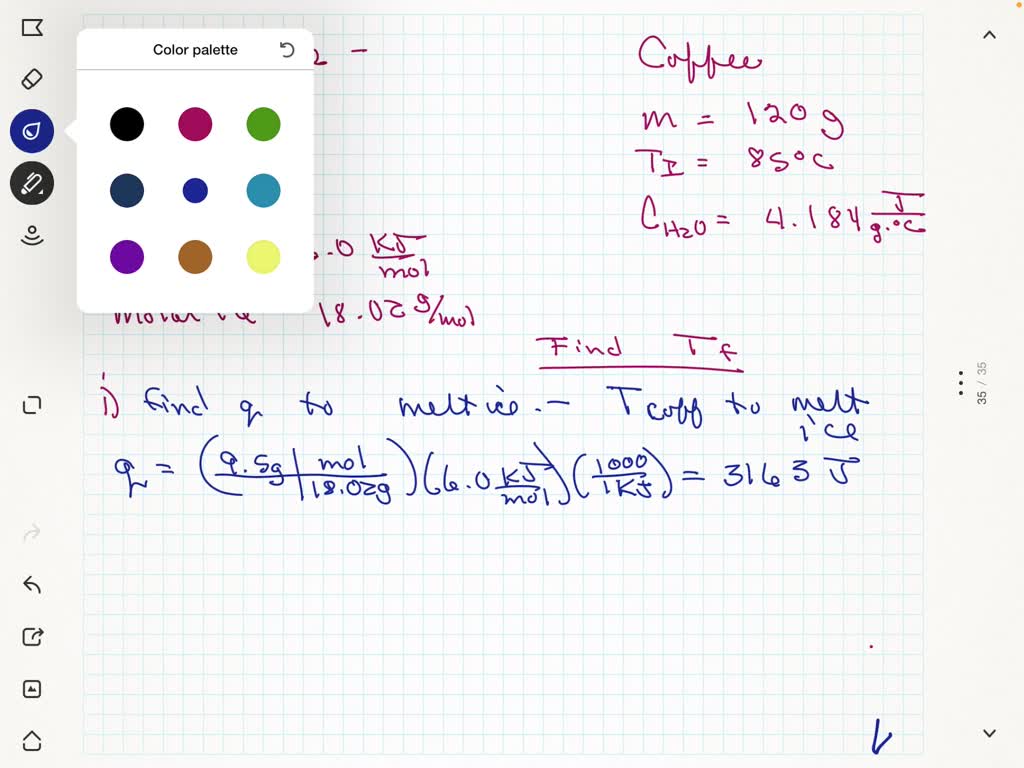 Color palette
2 -
Coffee
m = 120 g
T_I = 85°C
C_H2O = 4.184 J/g·°C
.0 KJ/mol
18.02 g/mol
Find T_f
i) find q to melt ice. - T coff to melt ice
q = (9.5g | mol / 18.02g)(6.0 KJ/mol)(1000/1KJ) = 3163 J
35 / 35